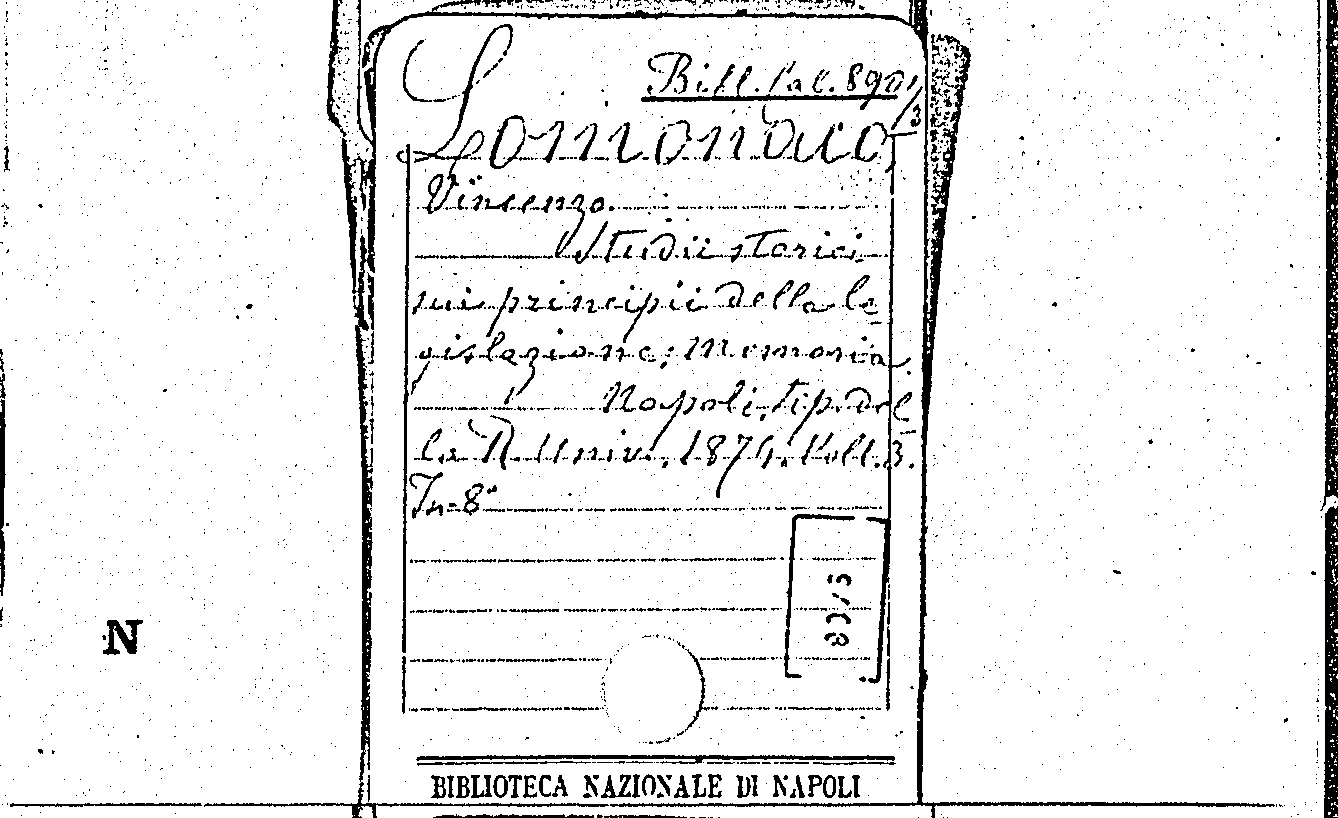 Bibl. Sal. 890/3
Lomonaco,
Vincenzo.
Studii storici
sui principii della le
gislazione; Memoria.
Napoli, tip. del
la R. Univ., 1874. Voll. 3.
In-8°
N
BIBLIOTECA NAZIONALE DI NAPOLI